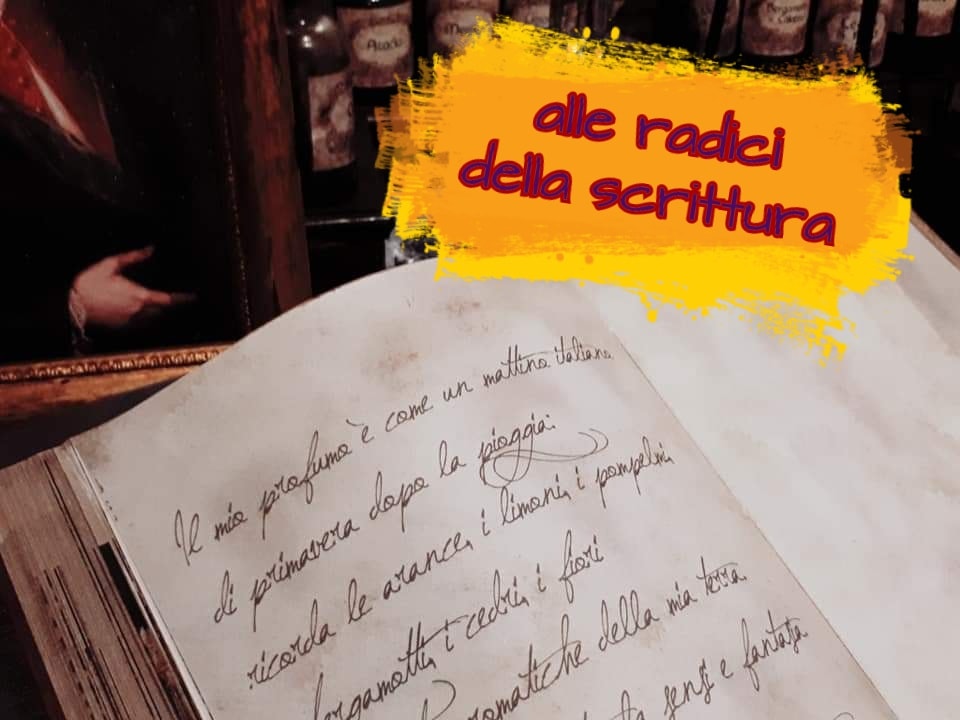 Acacia
alle radici
della scrittura
Il mio profumo è come un mattino italiano
di primavera dopo la pioggia:
ricorda le arance, i limoni, i pompelmi,
bergamotti, i cedri, i fiori
aromatiche della mia terra
sensi e fantasia